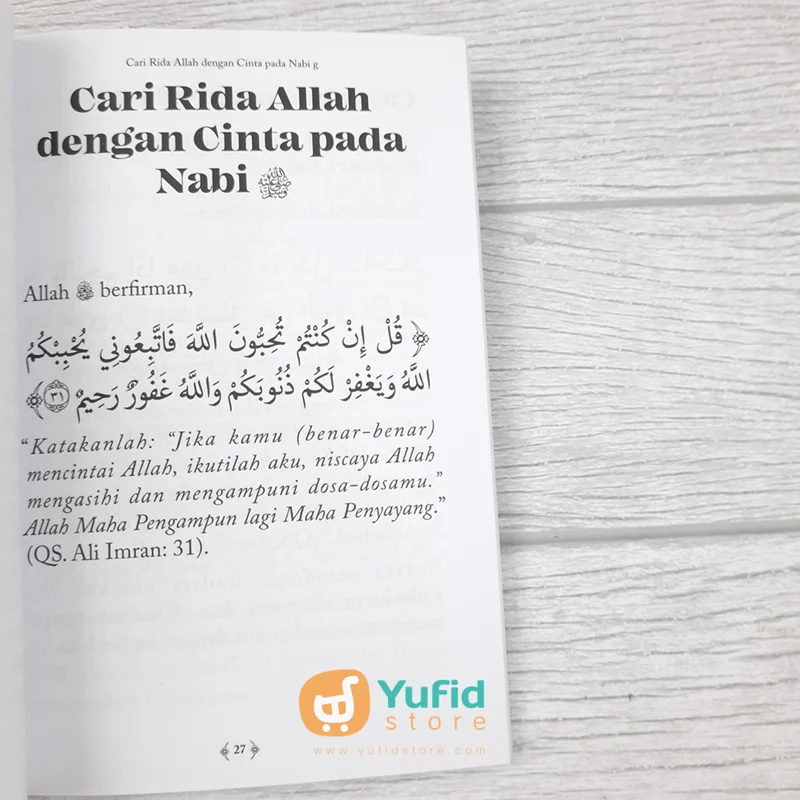 Cari Rida Allah dengan Cinta pada Nabi g
Cari Rida Allah
dengan Cinta pada
Nabi ﷺ
Allah ﷻ berfirman,
﴿ قُلْ إِنْ كُنْتُمْ تُحِبُّونَ اللَّهَ فَاتَّبِعُونِي يُحْبِبْكُمُ
اللَّهُ وَيَغْفِرْ لَكُمْ ذُنُوبَكُمْ وَاللَّهُ غَفُورٌ رَحِيمٌ ٣١ ﴾
“Katakanlah: “Jika kamu (benar-benar)
mencintai Allah, ikutilah aku, niscaya Allah
mengasihi dan mengampuni dosa-dosamu.”
Allah Maha Pengampun lagi Maha Penyayang.”
(QS. Ali Imran: 31).
Yufid
store
www.yufidstore.com
27